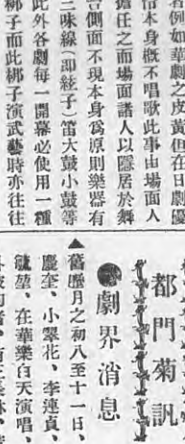 著例如華劇之皮黃但在日劇優
伶本身槪不唱歌此事由場面人
擔任之而場面諸人以隱居於舞
台側面不現本身爲原則樂器有
三味線（卽絃子）笛大鼓小鼓等
此外各劇每一開幕必使用一種
梆子而此梆子演武藝時亦往往
都門菊訊
●劇界消息
▲舊歷月之初八至十一日、
慶奎、小翠花、李連貞、
毓堃、在華樂白天演唱、